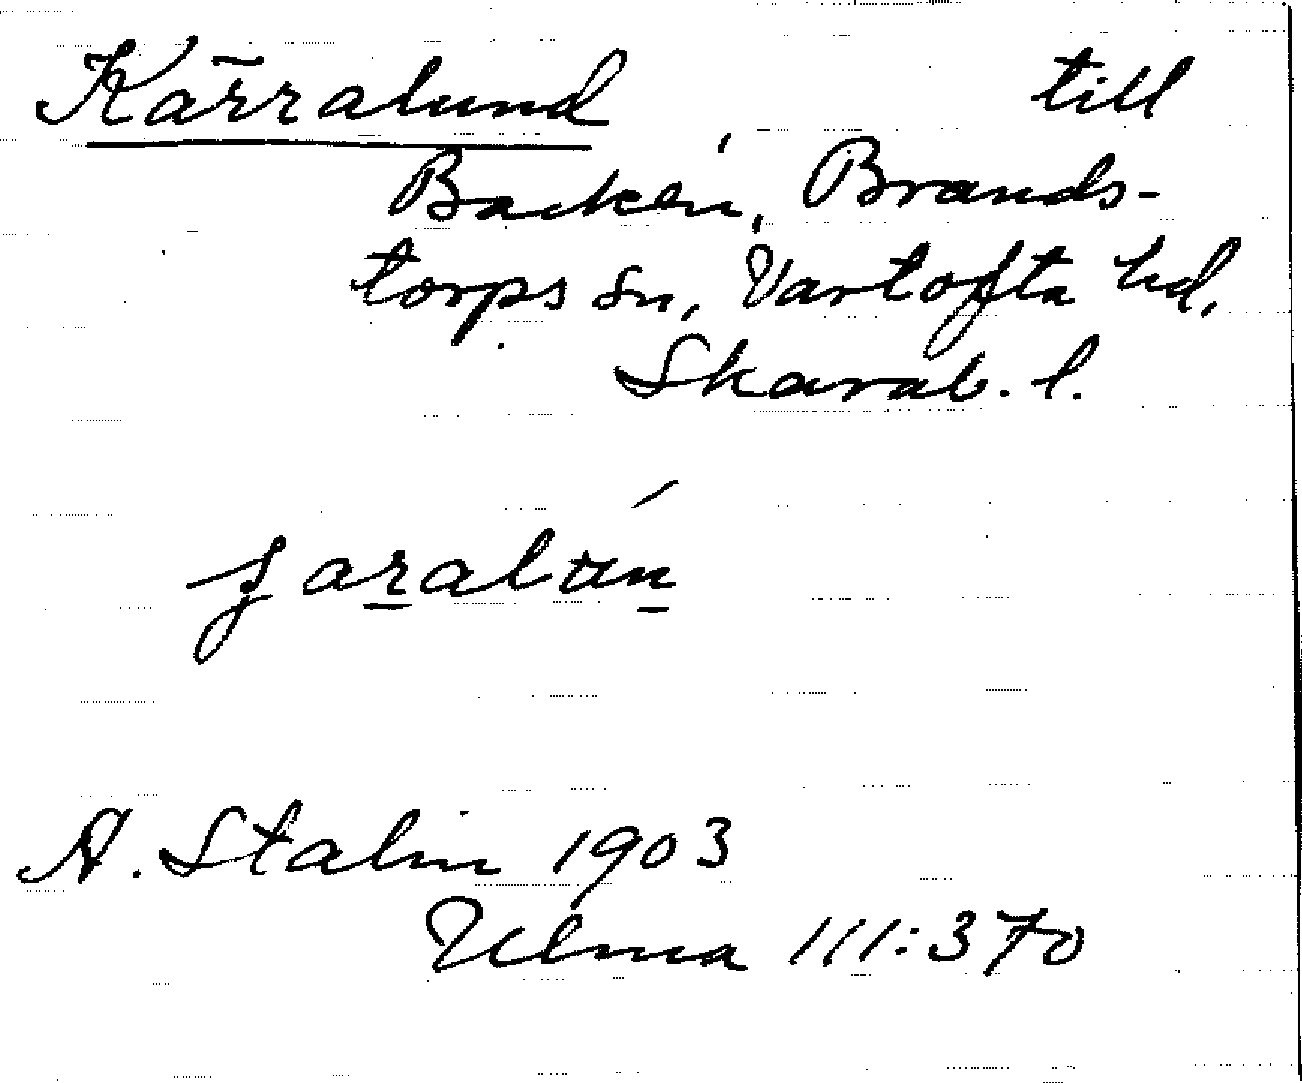 Kärralund till
Backen, Brands-
torps sn, Vartofta hd,
Skarab. l.
A. Stalin 1903
Ulma 111:370